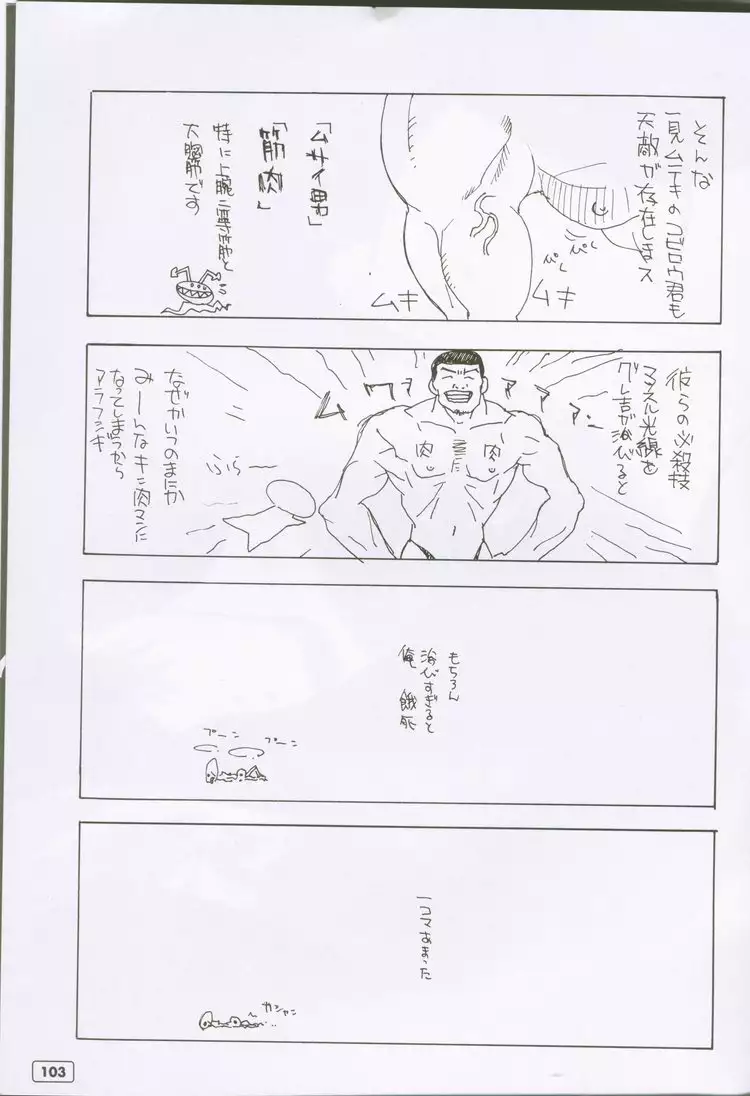 そんな
一見ムテキのコビロウ君も
天敵が存在しまス
ぴく
ぴく
ムキ
ムキ
「ムサイ男」
「筋肉」
特に上腕二等筋と
大胸筋です
彼らの必殺技
マッスル光線を
グレ吉が浴びると
ムワァァァァー
肉
肉
ふらー
なぜかいつのまにか
みーんなキン肉マンに
なってしまうから
アラフシギ
もちろん
浴びすぎると
俺 餓死
プーン
プーン
一コマあまった
カシャン
103